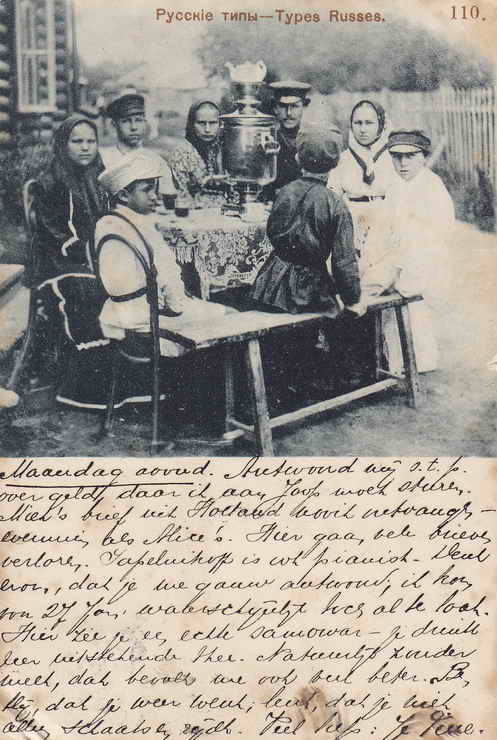 Русскіе типы—Types Russes.
110.
Maandag avond. Antwoord mij
over geld, daar ik aan Joop moet sturen.
brief uit Holland nooit ontvangen –
evenmin als Alice's. Hier gaan vele brieven
verloren. Sapelnikoff is pianist. Denk
, dat je me gauw antwoord; ik
27 Jan. waarschijnlijk toch al te laat.
Hier zie je een echte samowar – je drinkt
uitstekende thee. Natuurlijk zonder
melk, dat bevalt me ook veel beter.
blij, dat je weer went; leuk, dat je niet
alleen schaatsen rijdt. Veel liefs: Je